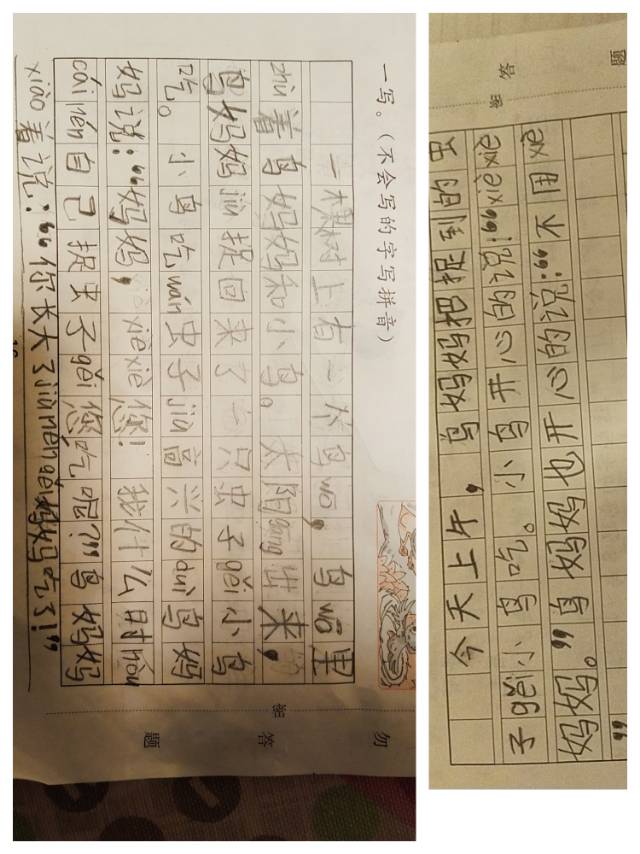 一写。（不会写的字写拼音）
一棵树上有一个鸟wō，鸟wō里
zhù着鸟妈妈和小鸟。太阳gāng出来，
鸟妈妈jiù捉回来了一只虫子gěi小鸟
吃。小鸟吃wán虫子jiù高兴的duì鸟妈
妈说：“妈妈，xièxiè您！我什么时hòu
cáinén自己捉虫子gěi您吃呢？”鸟妈妈
xiào着说：“你长大了jiùnéngěi妈妈吃了！”
勿
答
题
今天上午，鸟妈妈把捉到的虫
子gěi小鸟吃。小鸟开心的说：“xièxiè
妈妈。”鸟妈妈也开心的说：“不用xè
”
答
题